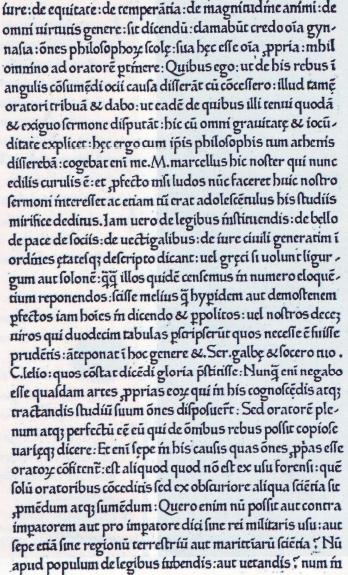 iure: de equitate: de temperãtia: de magnitudine animi: de
omni uirtutis genere: sit dicẽdũ: clamabũt credo oĩa gyn-
nasia: õnes philosophoꝝ scolę: sua hęc esse oĩa ꝓpria: nihil
omnino ad oratorẽ ꝑtinere: Quibus ego: ut de his rebus ĩ
angulis cõsumẽdi ocii causa differãt cũ cõcessero: illud tamẽ
oratori tribuã & dabo: ut eadẽ de quibus illi tenui quodã
& exiguo sermone disputãt: hic cũ omni grauitatę & iocũ-
ditate explicet: hęc ergo cum ip̃is philosophis tum athenis
disserebã: cogebat eni me. M. marcellus hic noster qui nunc
edilis curulis ẽ: et ꝓfecto nisi ludos nũc faceret huic nostro
sermoni interesset ac etiam tũ erat adolescẽtulus his studiis
mirifice deditus. Iam uero de legibus instituendis: de bello
de pace de sociis: de uectigalibus: de iure ciuili generatim ĩ
ordines ętatesqꝫ descripto dicant: uel gręci si uolunt ligur-
gum aut solonẽ: q̃q̃ illos quidẽ censemus in numero eloquẽ-
tium reponendos: scisse melius q̃ hypidem aut demostenem
ꝑfectos iam hoĩes in dicendo & ꝑpolitos: uel nostros decẽ
uiros qui duodecim tabulas ꝑscripserũt quos necesse ẽ fuisse
prudẽtis: ãteponat ĩ hoc genere &. Ser. galbę & socero tuo.
C. lelio: quos cõstat dicẽdi gloria p̃stitisse: Nunq̃ eni negabo
esse quasdam artes ꝓprias eoꝝ qui in his cognoscẽdis atqꝫ
tractandis studiũ suum õnes disposuert̃: Sed oratorẽ ple-
num atqꝫ perfectũ eẽ eũ qui de õnibus rebus possit copiose
uarięqꝫ dicere: Et eni sępe in his causis quas õnes ꝓp̃as esse
oratoꝝ cõfitent̃: est aliquod quod nõ est ex usu forensi: quẽ
solũ oratoribus cõceditis sed ex obscuriore aliqua sciẽtia sit
ꝓmẽdum atqꝫ sumẽdum: Quero enim nũ possit aut contra
impatorem aut pro impatore dici sine rei militaris usu: aut
sępe etiã sine regionũ terrestriũ aut marittiarũ sciẽtia? Nũ
apud populum de legibus iubendis: aut uetandis? num in